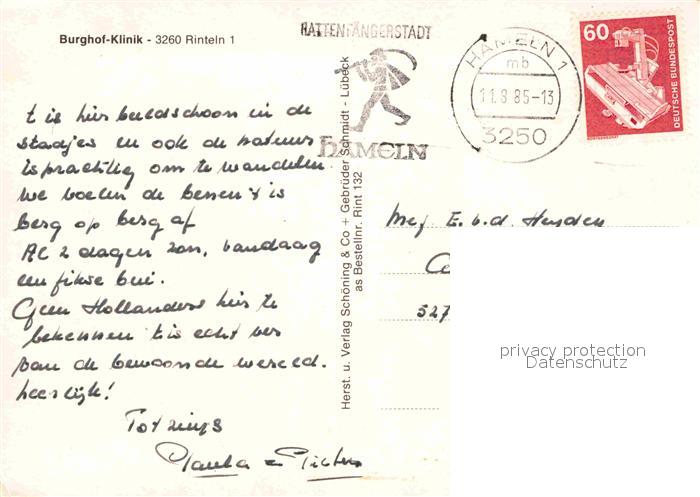 Burghof-Klinik - 3260 Rinteln 1
RATTENFÄNGERSTADT
HAMELN
HAMELN 1
mb
11.8.85-13
3250
60
DEUTSCHE BUNDESPOST
t is hier beeldschoon in de
stadjes en ook de natuur
is prachtig om te wandelen
we voelen de benen t is
berg op berg af
Al 2 dagen zon, vandaag
een fikse bui.
Geen Hollanders hier te
bekennen t is echt ver
van de bewoonde wereld.
heerlijk!
Tot ziens
Paula en Pieter
Herst. u. Verlag Schöning & Co + Gebrüder Schmidt - Lübeck
as Bestellnr. Rint 132
Mej E. v.d. Heyden
527
privacy protection
Datenschutz